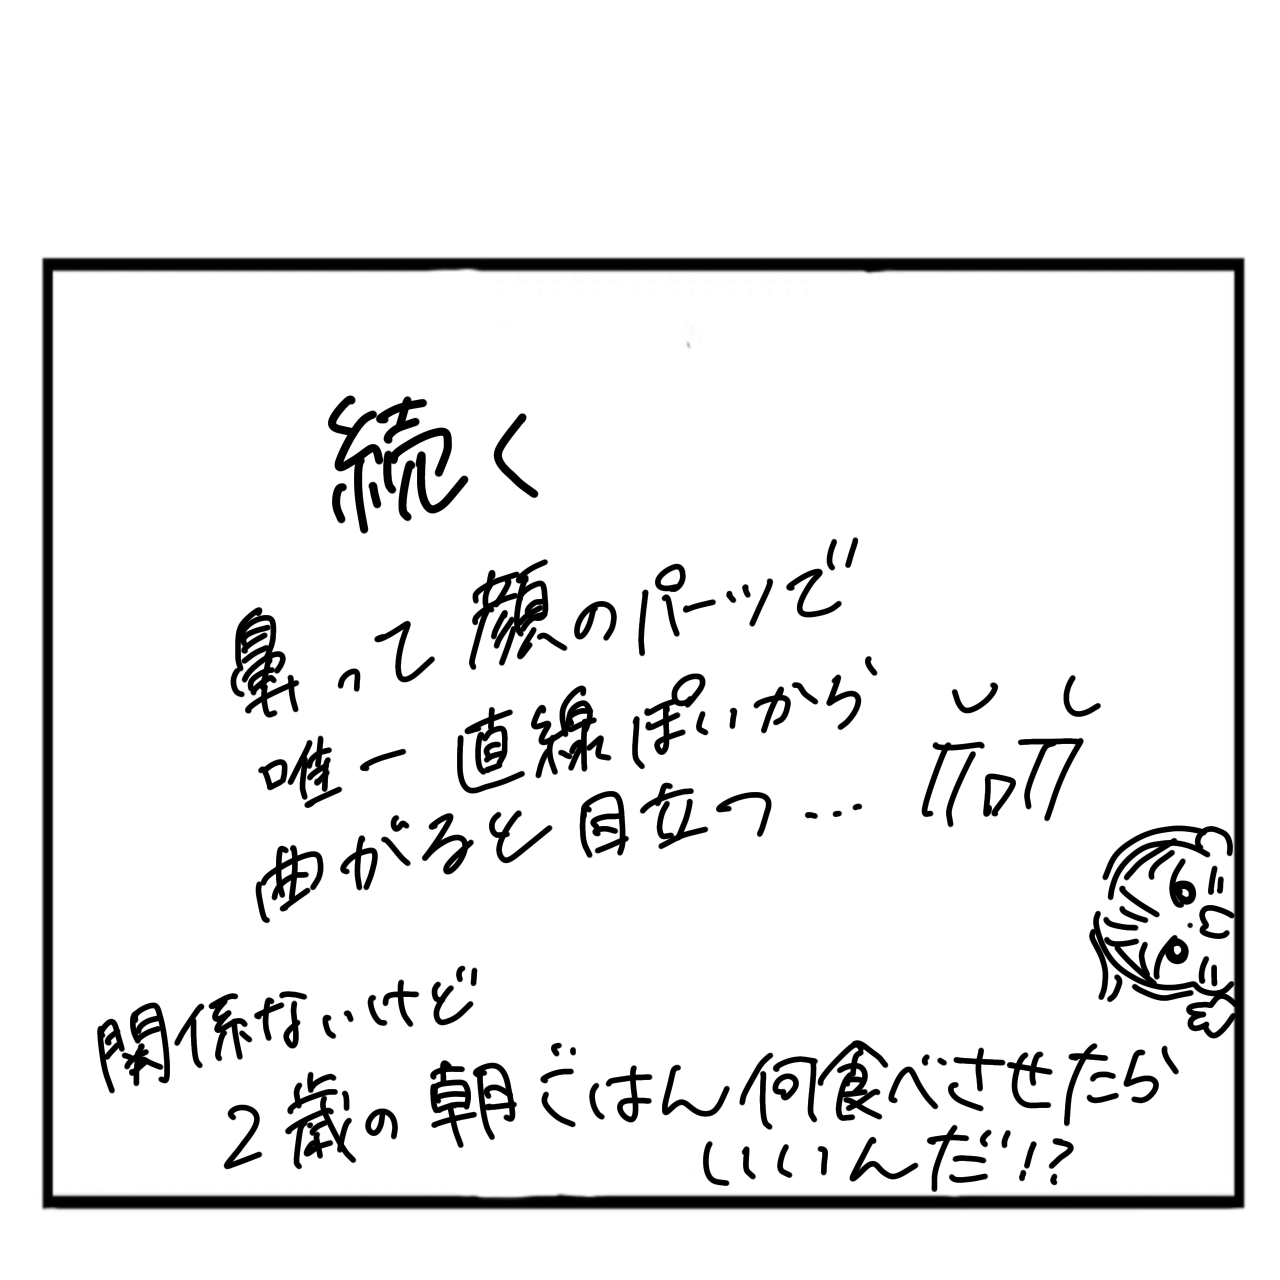 続く
鼻って顔のパーツで
唯一直線ぽいから
曲がると目立つ…
関係ないけど
2歳の朝ごはん何食べさせたら
いいんだ!?